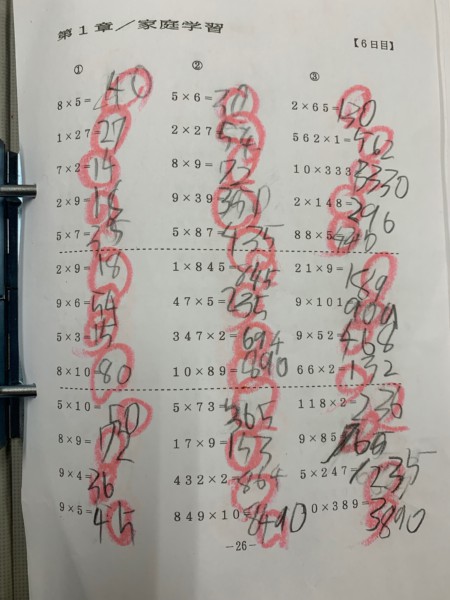 第1章/家庭学習
【6日目】
①
8×5=40
1×27=27
7×2=14
2×9=18
5×7=35
2×9=18
9×6=54
5×3=15
8×10=80
5×10=50
8×9=72
9×4=36
9×5=45
②
5×6=30
2×27=54
8×9=72
9×39=
5×87=435
1×845=845
47×5=235
347×2=694
10×89=890
5×73=365
17×9=153
432×2=864
849×10=8490
③
2×65=130
562×1=562
10×333=3330
2×148=296
88×5=
21×9=189
9×101=909
9×52=468
66×2=132
118×2=236
9×85=765
5×247=1235
10×389=3890
－26－